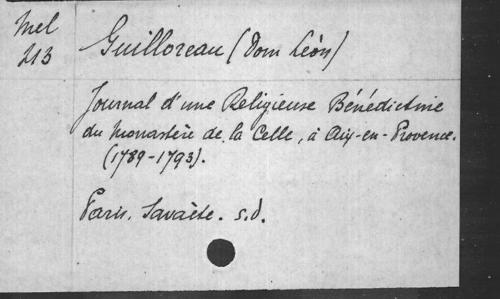 Mel
213
Guilloreau (Dom Léon)
Journal d'une Religieuse Bénédictine
du monastère de la Celle, à Aix-en-Provence.
(1789-1793).
Paris. Savaète. s.d.